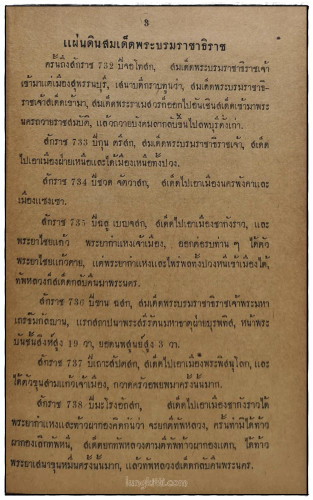 3
แผ่นดินสมเด็จพระบรมราชาธิราช
ครั้นถึงศักราช 732 ปีจอโทศก, สมเด็จพระบรมราชาธิราชเจ้า
เข้ามาแต่เมืองสุพรรณบุรี, เสนาบดีกราบทูนว่า, สมเด็จพระบรมราชาธิ-
ราชเจ้าเสด็จเข้ามา, สมเด็จพระราเมศวรก็ออกไปอันเชินเสด็จเข้ามาพระ
นครถวายราชสมบัติ, แล้วถวายบังคมลากลับขึ้นไปลพบุรีดั่งเก่า.
ศักราช 733 ปีกุน ตรีศก, สมเด็จพระบรมราชาธิราชเจ้า, สเด็จ
ไปเอาเมืองฝ่ายเหนือและได้เมืองเหนือทั้งปวง.
ศักราช 734 ปีชวด จัตวาศก, สเด็จไปเอาเมืองนครพังคาและ
เมืองแซงเซา.
ศักราช 735 ปีฉลู เบญจศก, สเด็จไปเอาเมืองชากังราว, และ
พระยาไซยแก้ว พระยากำแหงเจ้าเมือง, ออกต่อรบท่าน ๆ ได้ตัว
พระยาไซยแก้วตาย, แต่พระยากำแหงและไพร่พลทั้งปวงหนีเข้าเมืองได้,
ทัพหลวงก็เสด็จกลับคืนมาพระนคร.
ศักราช 736 ปีขาน ฉศก, สมเด็จพระบรมราชาธิราชเจ้าพระมหา
เถรธัมกัลญาน, แรกสถาปนาพระศรีรัตนมหาธาตุฝ่ายบุรพทิศ, หน้าพระ
บันชั้นสิงห์สูง 19 วา, ยอดนพศูนย์สูง 3 วา.
ศักราช 737 ปีเถาะสัปตศก, สเด็จไปเอาเมืองพระพิศนุโลก, และ
ได้ตัวขุนสามแก้วเจ้าเมือง, กวาดครัวอพยพมาครั้งนั้นมาก.
ศักราช 738 ปีมะโรงอัถศก, สเด็จไปเอาเมืองชากังราวได้
พระยากำแหงและท้าวผากองคิดกันว่า จะยกตีทัพหลวง, ครั้นทำมิได้ท้าว
ผากองเลิกทัพหนี, สเด็จยกทัพหลวงตามตีทัพท้าวผากองแตก, ได้ท้าว
พระยาเสนาขุนหมื่นครั้งนั้นมาก, แล้วทัพหลวงสเด็จกลับคืนพระนคร.